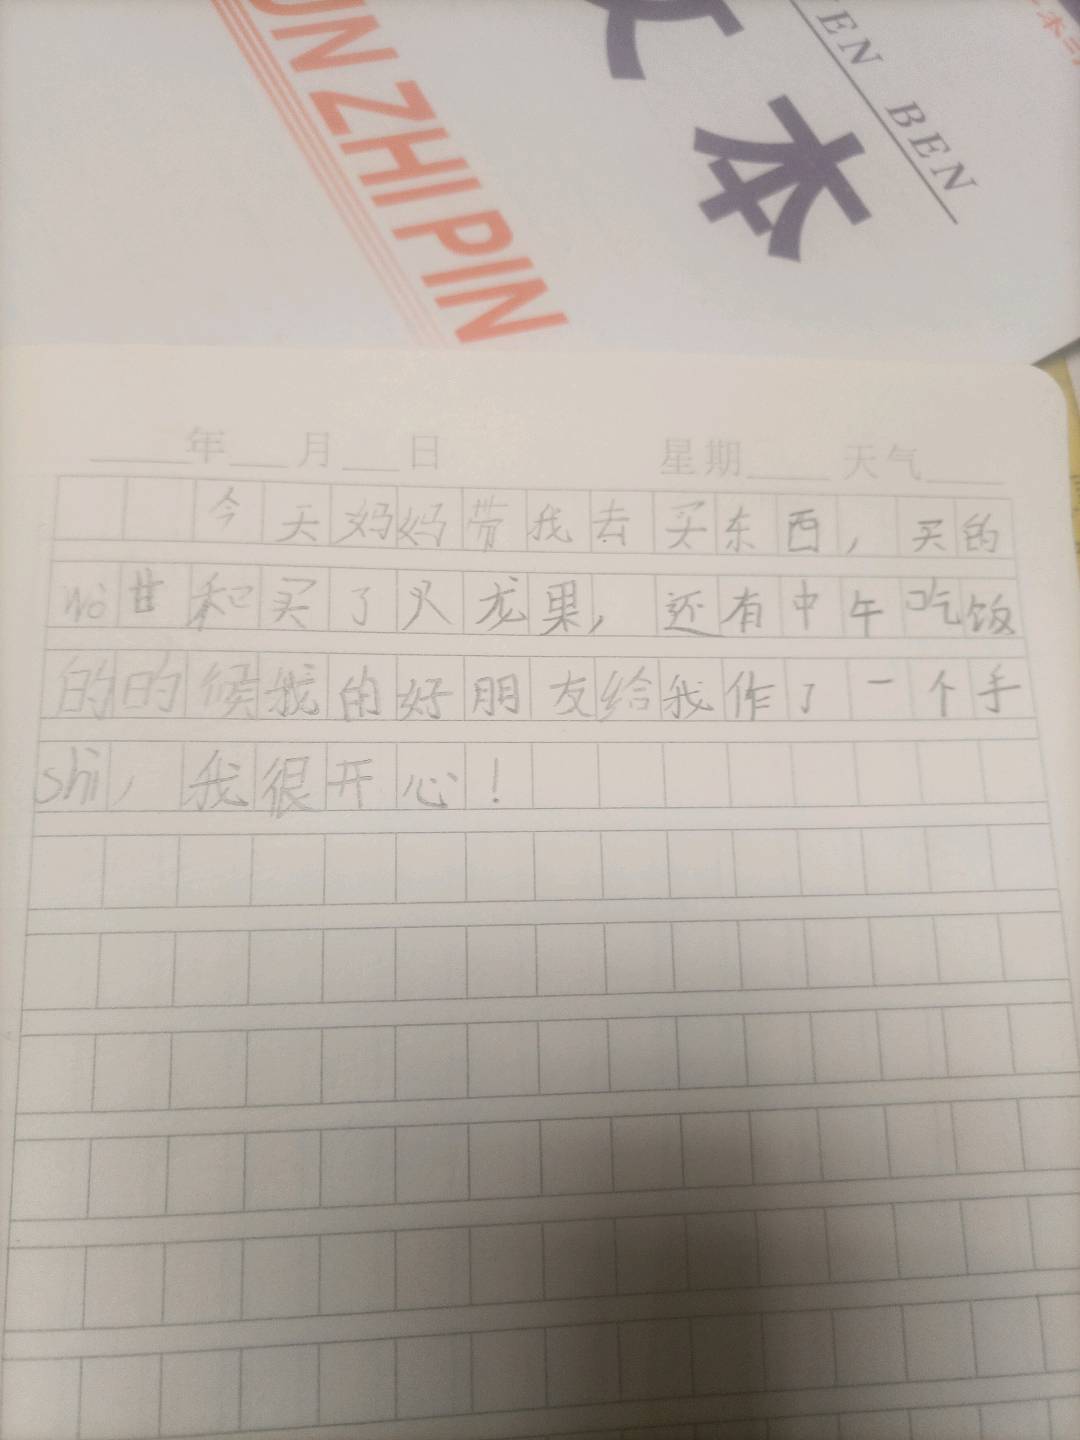 UN ZHI PIN
文本
EN BEN
年 月 日 星期 天气
今天妈妈带我去买东西，买的
wo甘和买了火龙果，还有中午吃饭
的的候我的好朋友给我作了一个手
shi，我很开心！